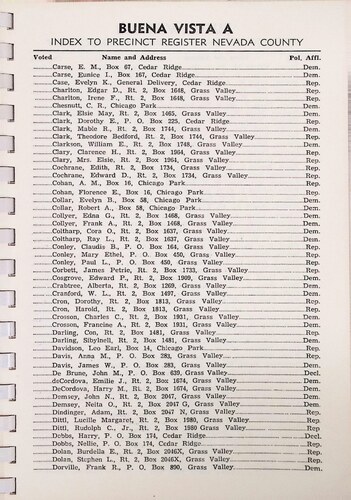 BUENA VISTA A
INDEX TO PRECINCT REGISTER NEVADA COUNTY
Voted Name and Address Pol. Affl.
Carse, E. M., Box 67, Cedar Ridge Dem.
Carse, Eunice I., Box 167, Cedar Ridge Dem.
Case, Evelyn K., General Delivery, Cedar Ridge Rep.
Charlton, Edgar D., Rt. 2, Box 1648, Grass Valley Rep.
Charlton, Irene F., Rt. 2, Box 1648, Grass Valley Rep.
Chesnutt, C. R., Chicago Park Dem.
Clark, Elsie May, Rt. 2, Box 1465, Grass Valley Dem.
Clark, Dorothy E., P. O. Box 225, Cedar Ridge Rep.
Clark, Mable R., Rt. 2, Box 1744, Grass Valley Dem.
Clark, Theodore Bedford, Rt. 2, Box 1744, Grass Valley Rep.
Clarkson, William E., Rt. 2, Box 1748, Grass Valley Dem.
Clary, Clarence H., Rt. 2, Box 1964, Grass Valley Rep.
Clary, Mrs. Elsie, Rt. 2, Box 1964, Grass Valley Rep.
Cochrane, Edith, Rt. 2, Box 1734, Grass Valley Rep.
Cochrane, Edward D., Rt. 2, Box 1734, Grass Valley Rep.
Cohan, A. M., Box 16, Chicago Park Rep.
Cohan, Florence E., Box 16, Chicago Park Rep.
Collar, Evelyn B., Box 58, Chicago Park Dem.
Collar, Robert A., Box 58, Chicago Park Dem.
Collyer, Edna G., Rt. 2, Box 1468, Grass Valley Dem.
Collyer, Frank A., Rt. 2, Box 1468, Grass Valley Dem.
Coltharp, Cora O., Rt. 2, Box 1637, Grass Valley Dem.
Coltharp, Ray L., Rt. 2, Box 1637, Grass Valley Dem.
Conley, Claudis B., P. O. Box 164, Grass Valley Rep.
Conley, Mary Ethel, P. O. Box 450, Grass Valley Rep.
Conley, Paul L., P. O. Box 450, Grass Valley Rep.
Corbett, James Petrie, Rt. 2, Box 1733, Grass Valley Rep.
Cosgrove, Edward P., Rt. 2, Box 1909, Grass Valley Dem.
Crabtree, Alberta, Rt. 2, Box 1269, Grass Valley Dem.
Cranford, W. L., Rt. 2, Box 1497, Grass Valley Dem.
Cron, Dorothy, Rt. 2, Box 1813, Grass Valley Rep.
Cron, Harold, Rt. 2, Box 1813, Grass Valley Rep.
Crosson, Charles C., Rt. 2, Box 1931, Grass Valley Dem.
Crosson, Francine A., Rt. 2, Box 1931, Grass Valley Dem.
Darling, Con, Rt. 2, Box 1481, Grass Valley Rep.
Darling, Sibyinell, Rt. 2, Box 1481, Grass Valley Dem.
Davidson, Leo Earl, Box 14, Chicago Park Rep.
Davis, Anna M., P. O. Box 283, Grass Valley Rep.
Davis, James W., P. O. Box 283, Grass Valley Dem.
De Brune, John M., P. O. Box 639, Grass Valley Decl.
deCordova, Emilie J., Rt. 2, Box 1674, Grass Valley Dem.
DeCordova, Harry M., Rt. 2, Box 1674, Grass Valley Dem.
Demsey, John N., Rt. 2, Box 2047, Grass Valley Dem.
Demsey, Nelta O., Rt. 2, Box 2047 G, Grass Valley Dem.
Dindinger, Adam, Rt. 2, Box 2047 N, Grass Valley Rep.
Dittl, Lucille Margaret, Rt. 2, Box 1980, Grass Valley Rep.
Dittl, Rudolph C., Jr., Rt. 2, Box 1980, Grass Valley Rep.
Dobbs, Harry, P. O. Box 174, Cedar Ridge Decl.
Dobbs, Nellie, P. O. Box 174, Cedar Ridge Rep.
Dolan, Burdella E., Rt. 2, Box 2046X, Grass Valley Rep.
Dolan, Stephen L., Rt. 2, Box 2046X, Grass Valley Rep.
Dorville, Frank R., P. O. Box 890, Grass Valley Dem.